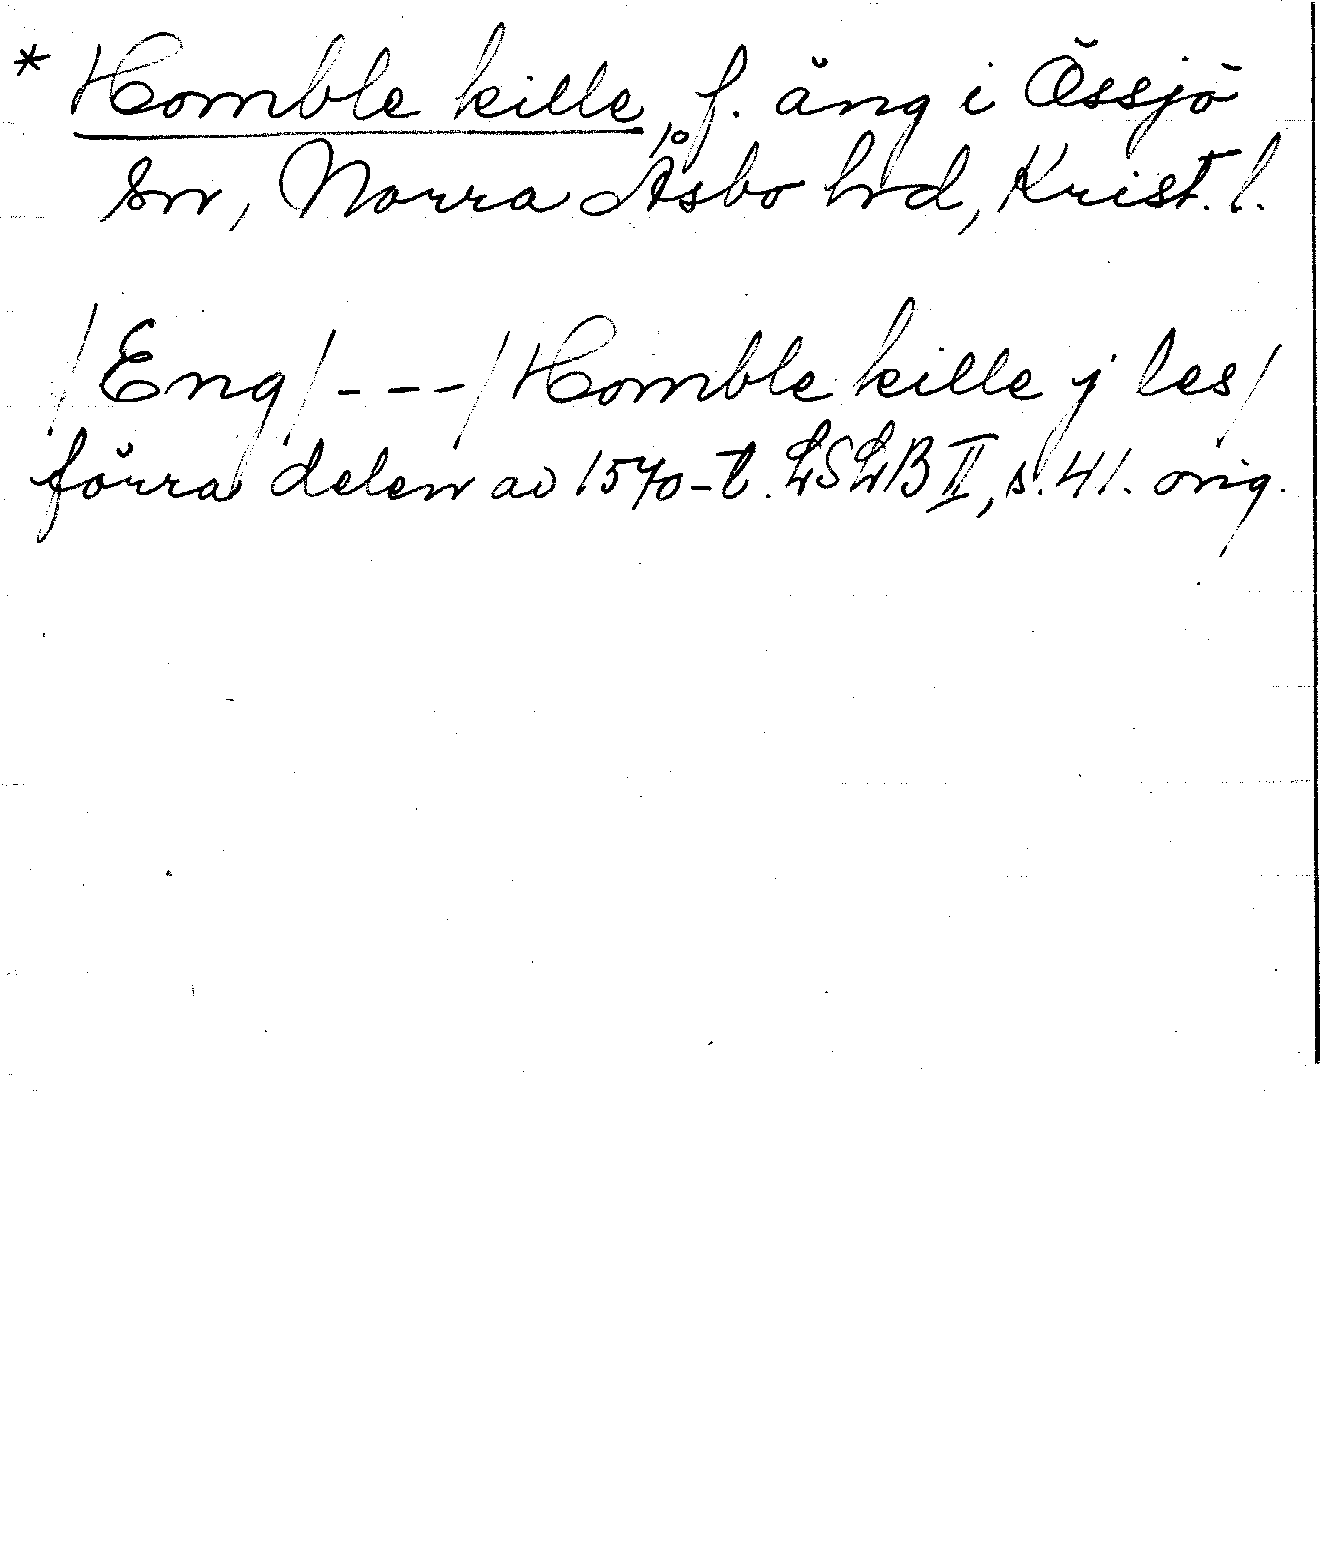 * Homble kille, f. äng i Össjö
sn, Norra Åsbo hd, Krist. l.
/Eng/ - - - /Homble kille j les/
förra delen av 1570-t. LSLB II, s. 41. orig.